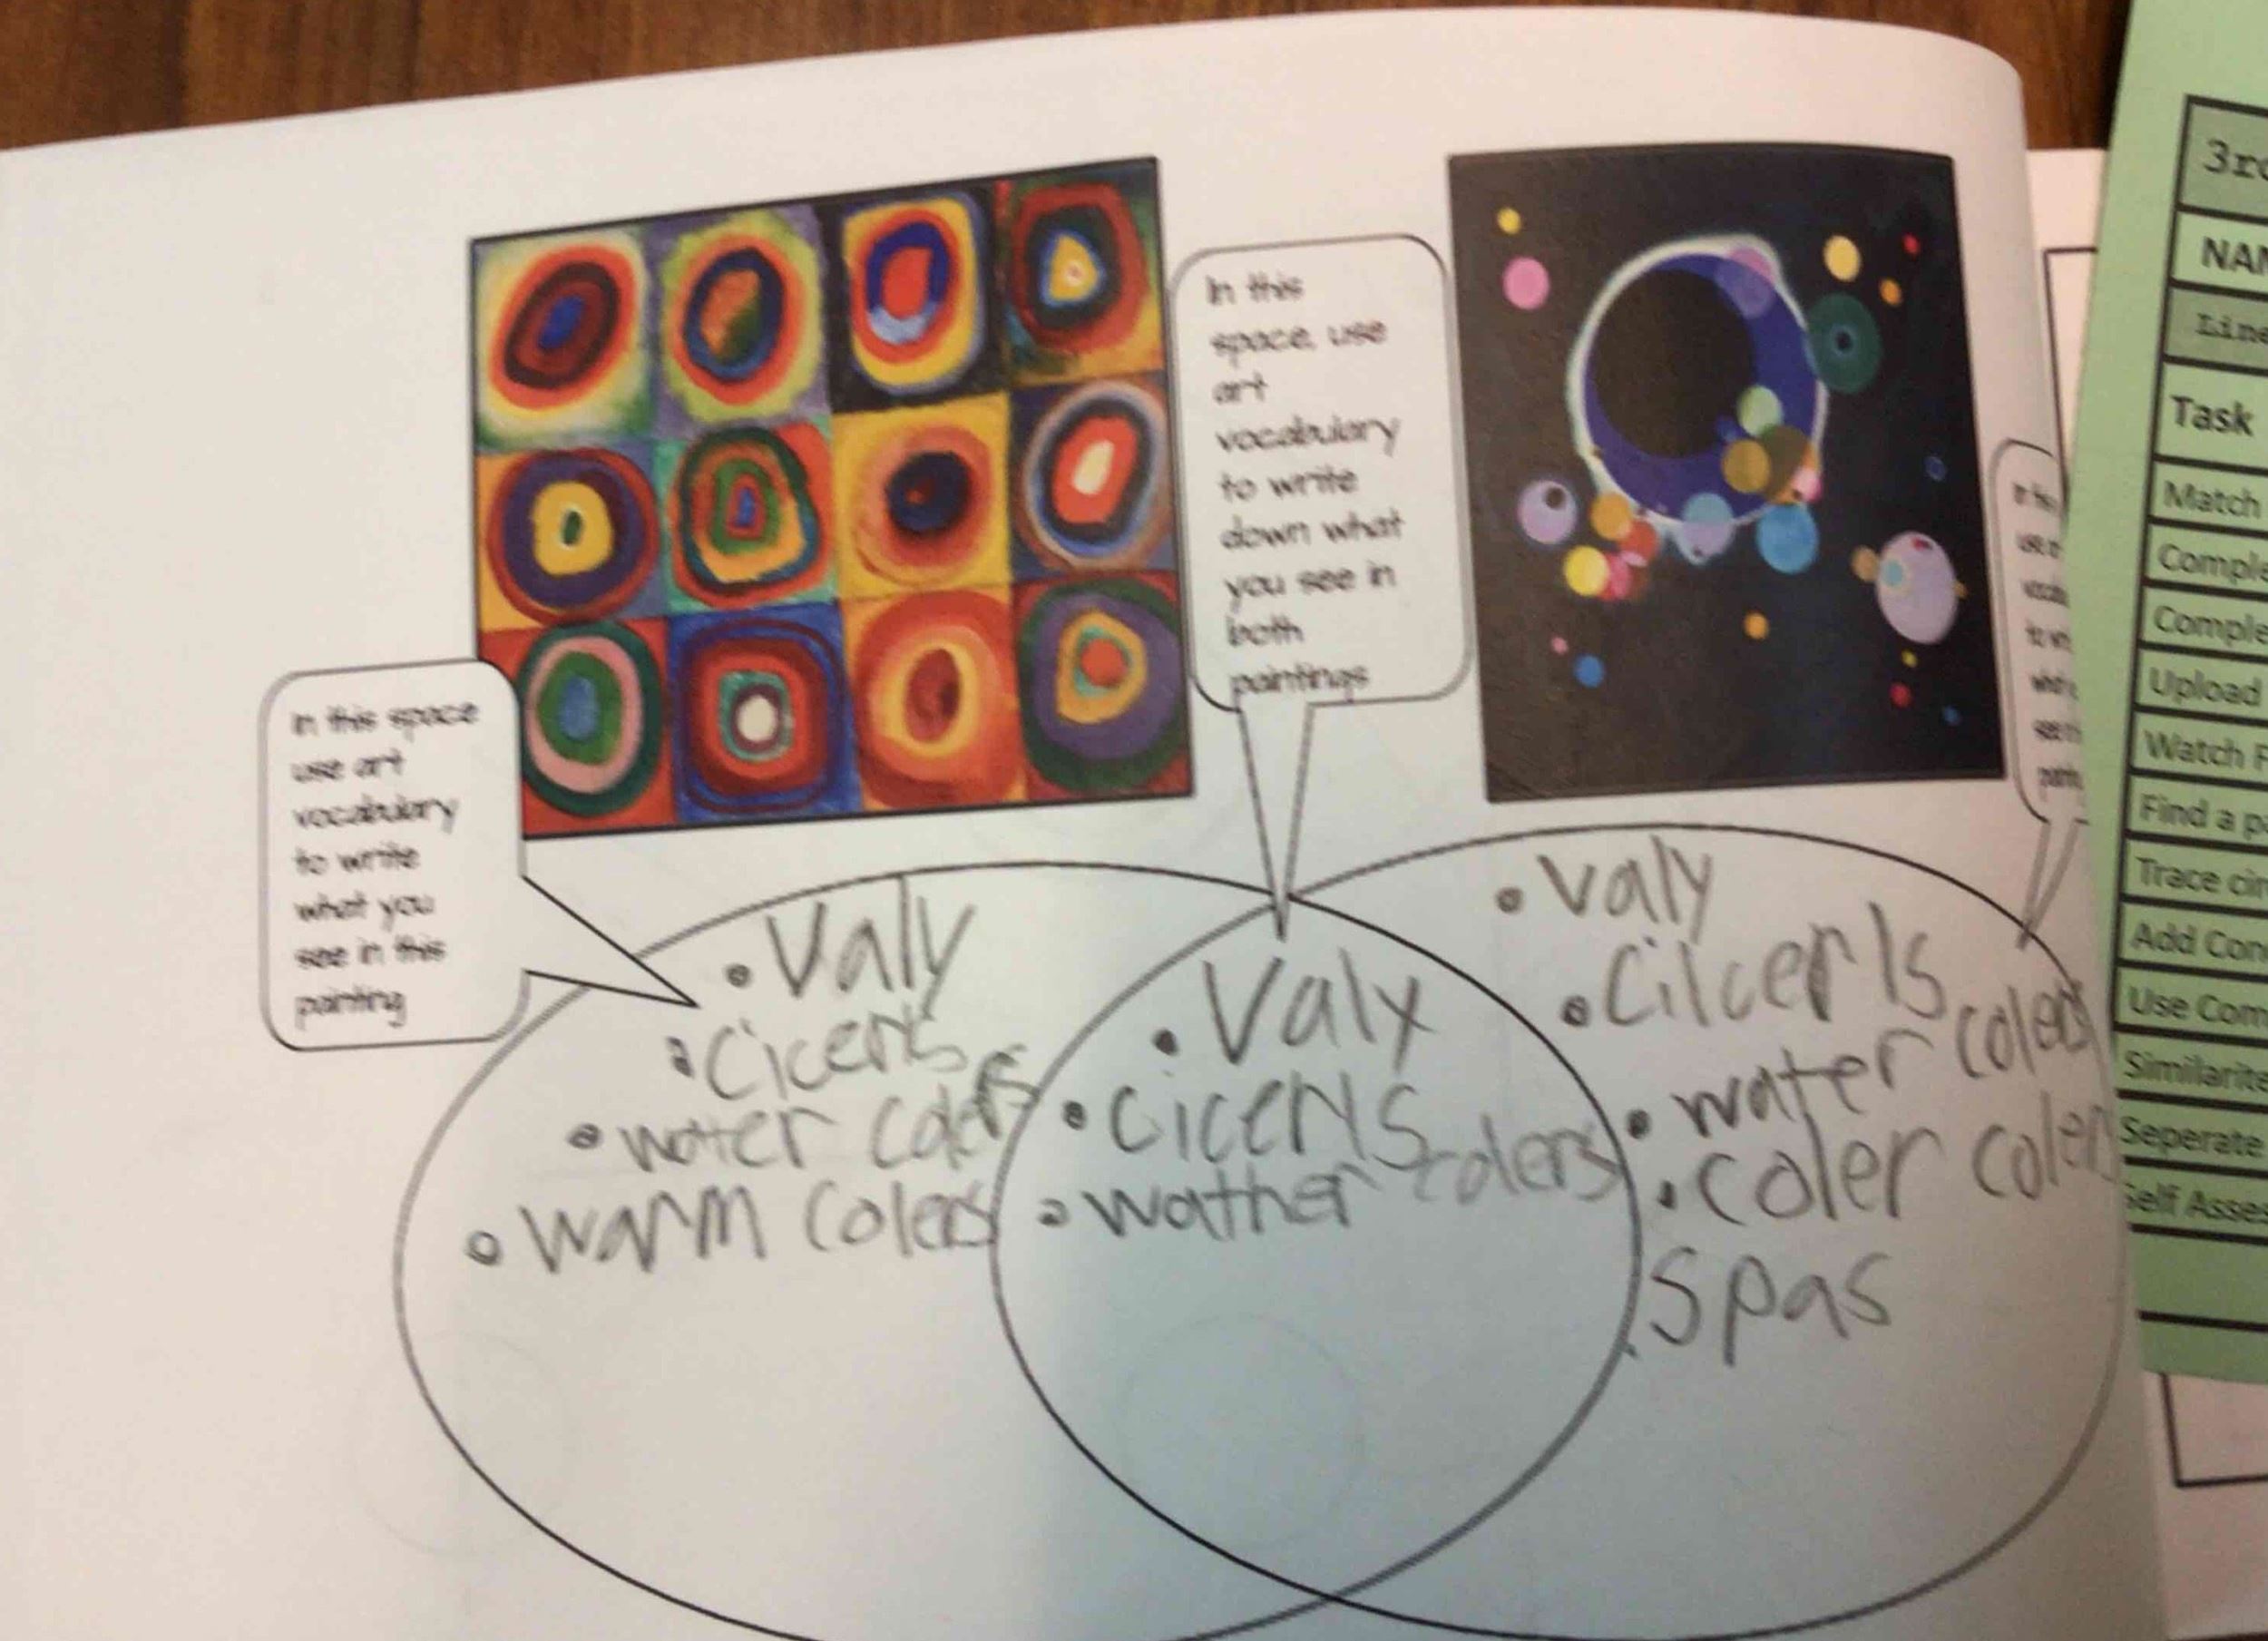 In this
space, use
art
vocabulary
to write
down what
you see in
both
paintings
In this space
use art
vocabulary
to write
what you
see in this
painting
• Valy
• Cicerls
• water colers
• warm colers
• Valy
• cicerls
• wather colers
• Valy
• Cilcerls
• water colers
• coler colers
• Spas
3rd
NAM
Line
Task
Match
Comple
Comple
Upload
Watch F
Find a p
Trace cir
Add Con
Use Com
Similarite
Seperate
Self Asses